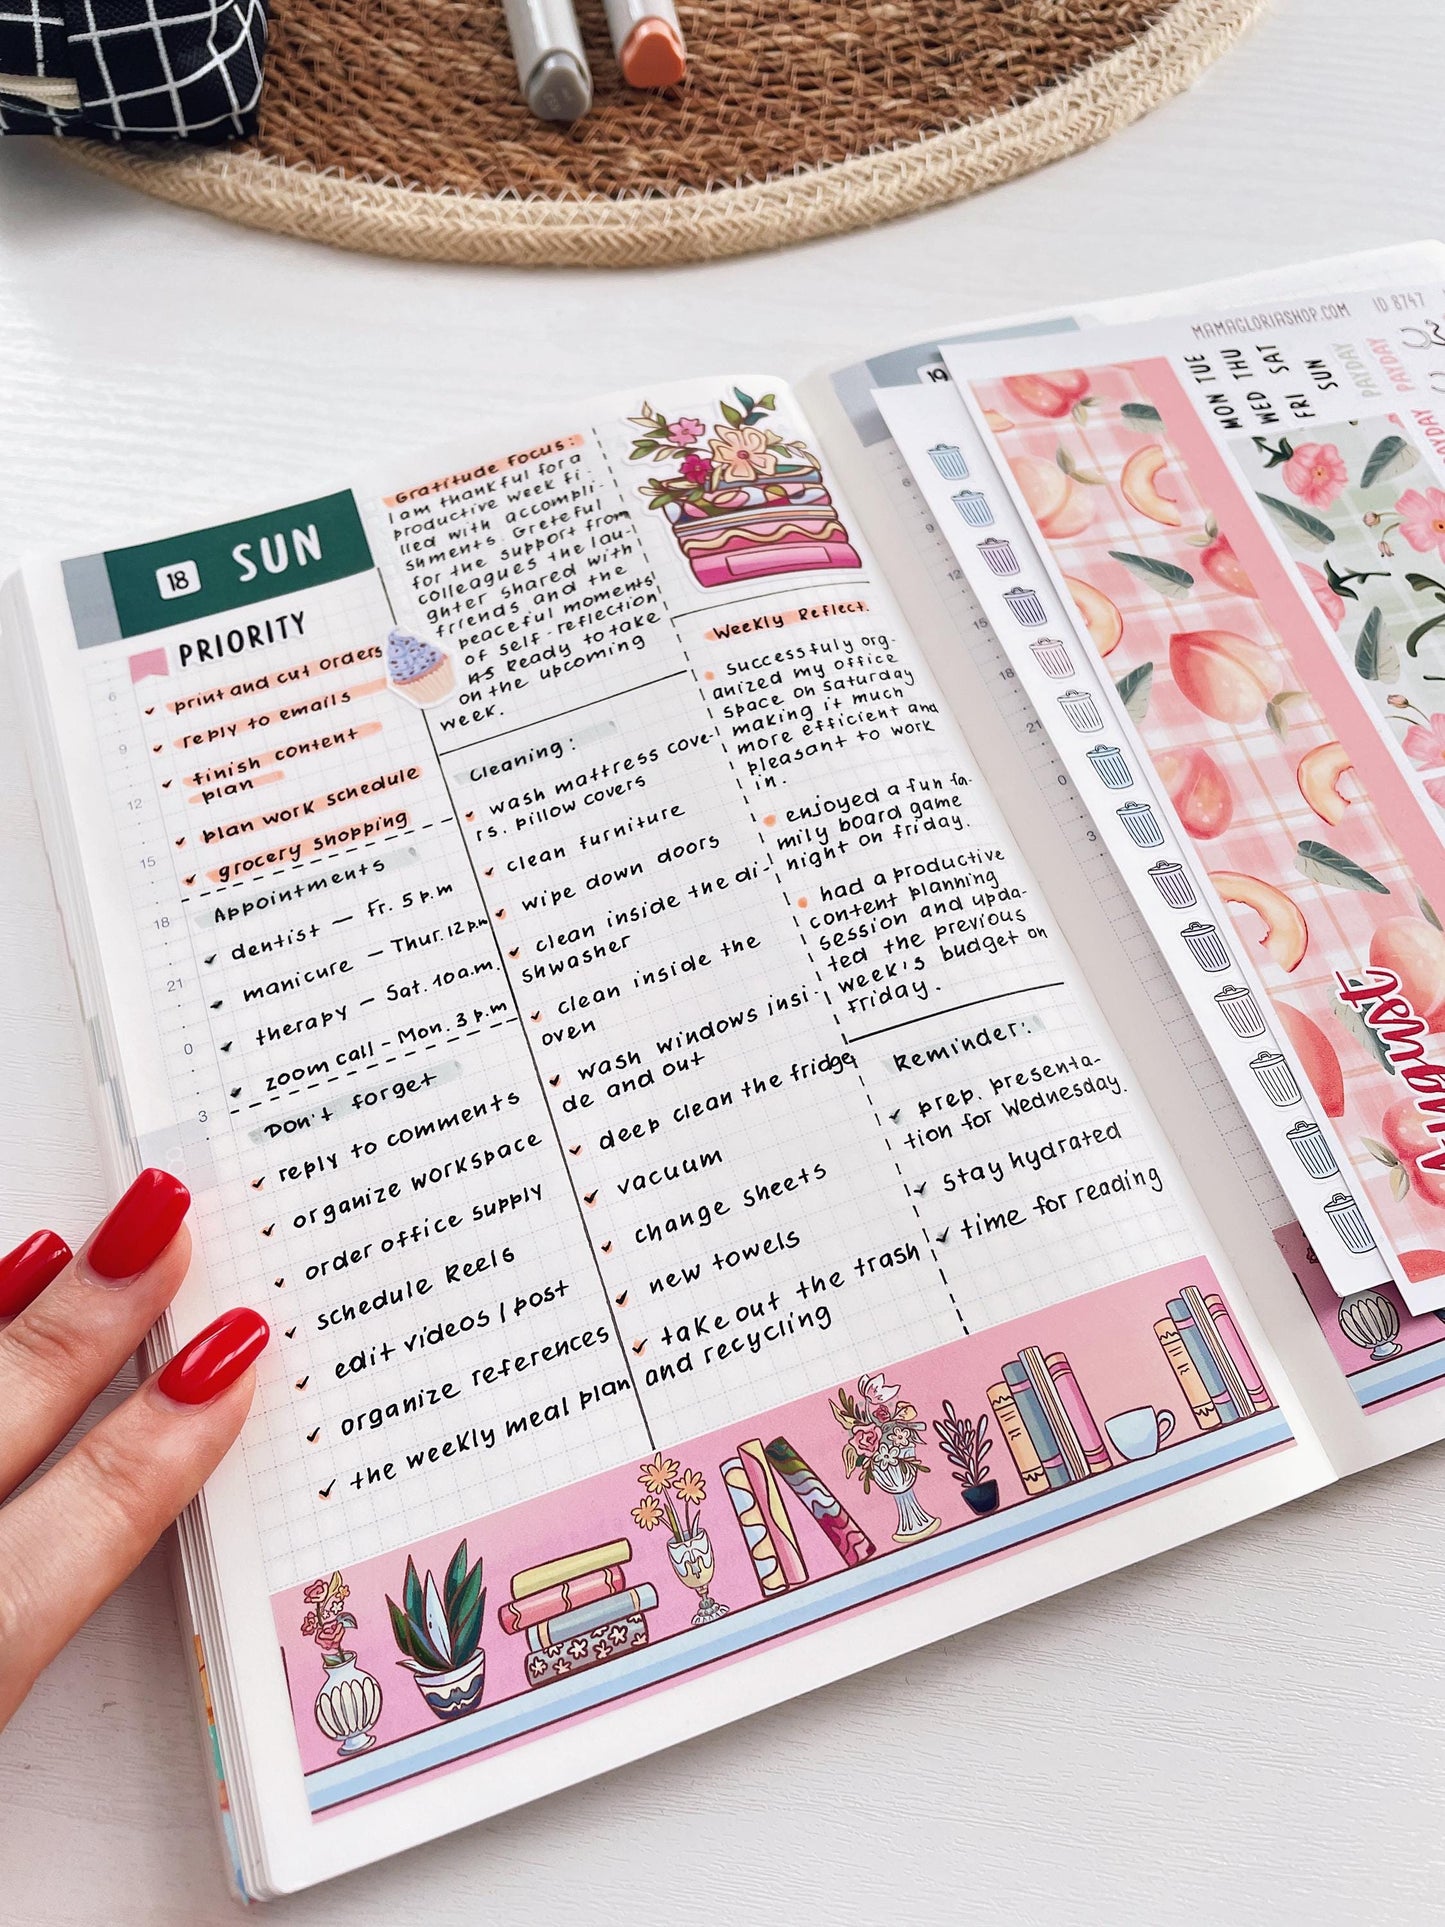 18 SUN
PRIORITY
print and cut orders
reply to emails
finish content
plan
plan work schedule
grocery shopping
Appointments
dentist – Fr. 5 p.m
manicure – Thur. 12 p.m
therapy – Sat. 10a.m.
zoom call – Mon. 3 p.m
Don't forget
reply to comments
organize workspace
order office supply
schedule Reels
edit videos / post
organize references
the weekly meal plan
6
9
12
15
18
21
0
3
Gratitude Focus:
I am thankful for a
productive week fi-
lled with accompli-
shments. Greteful
for the support from
colleagues the lau-
ghter shared with
friends and the
peaceful moments
of self-reflection
Ready to take
on the upcoming
week.
Cleaning:
wash mattress cove-
rs. pillow covers
clean furniture
wipe down doors
clean inside the di-
shwasher
clean inside the
oven
wash windows insi-
de and out
deep clean the fridge
vacuum
change sheets
new towels
take out the trash
and recycling
Weekly Reflect.
successfuly org-
anized my office
space on saturday
making it much
more efficient and
pleasant to work
in.
enjoyed a fun fa-
mily board game
night on friday.
had a productive
content planning
session and upda-
ted the previous
week's budget on
Friday.
Reminder:
prep. presenta-
tion for Wednesday.
stay hydrated
time for reading
19
6
9
12
15
18
21
0
3
MAMAGLORIASHOP.COM ID 8747
MON TUE
WED THU
FRI SAT
SUN
PAYDAY
PAYDAY
August